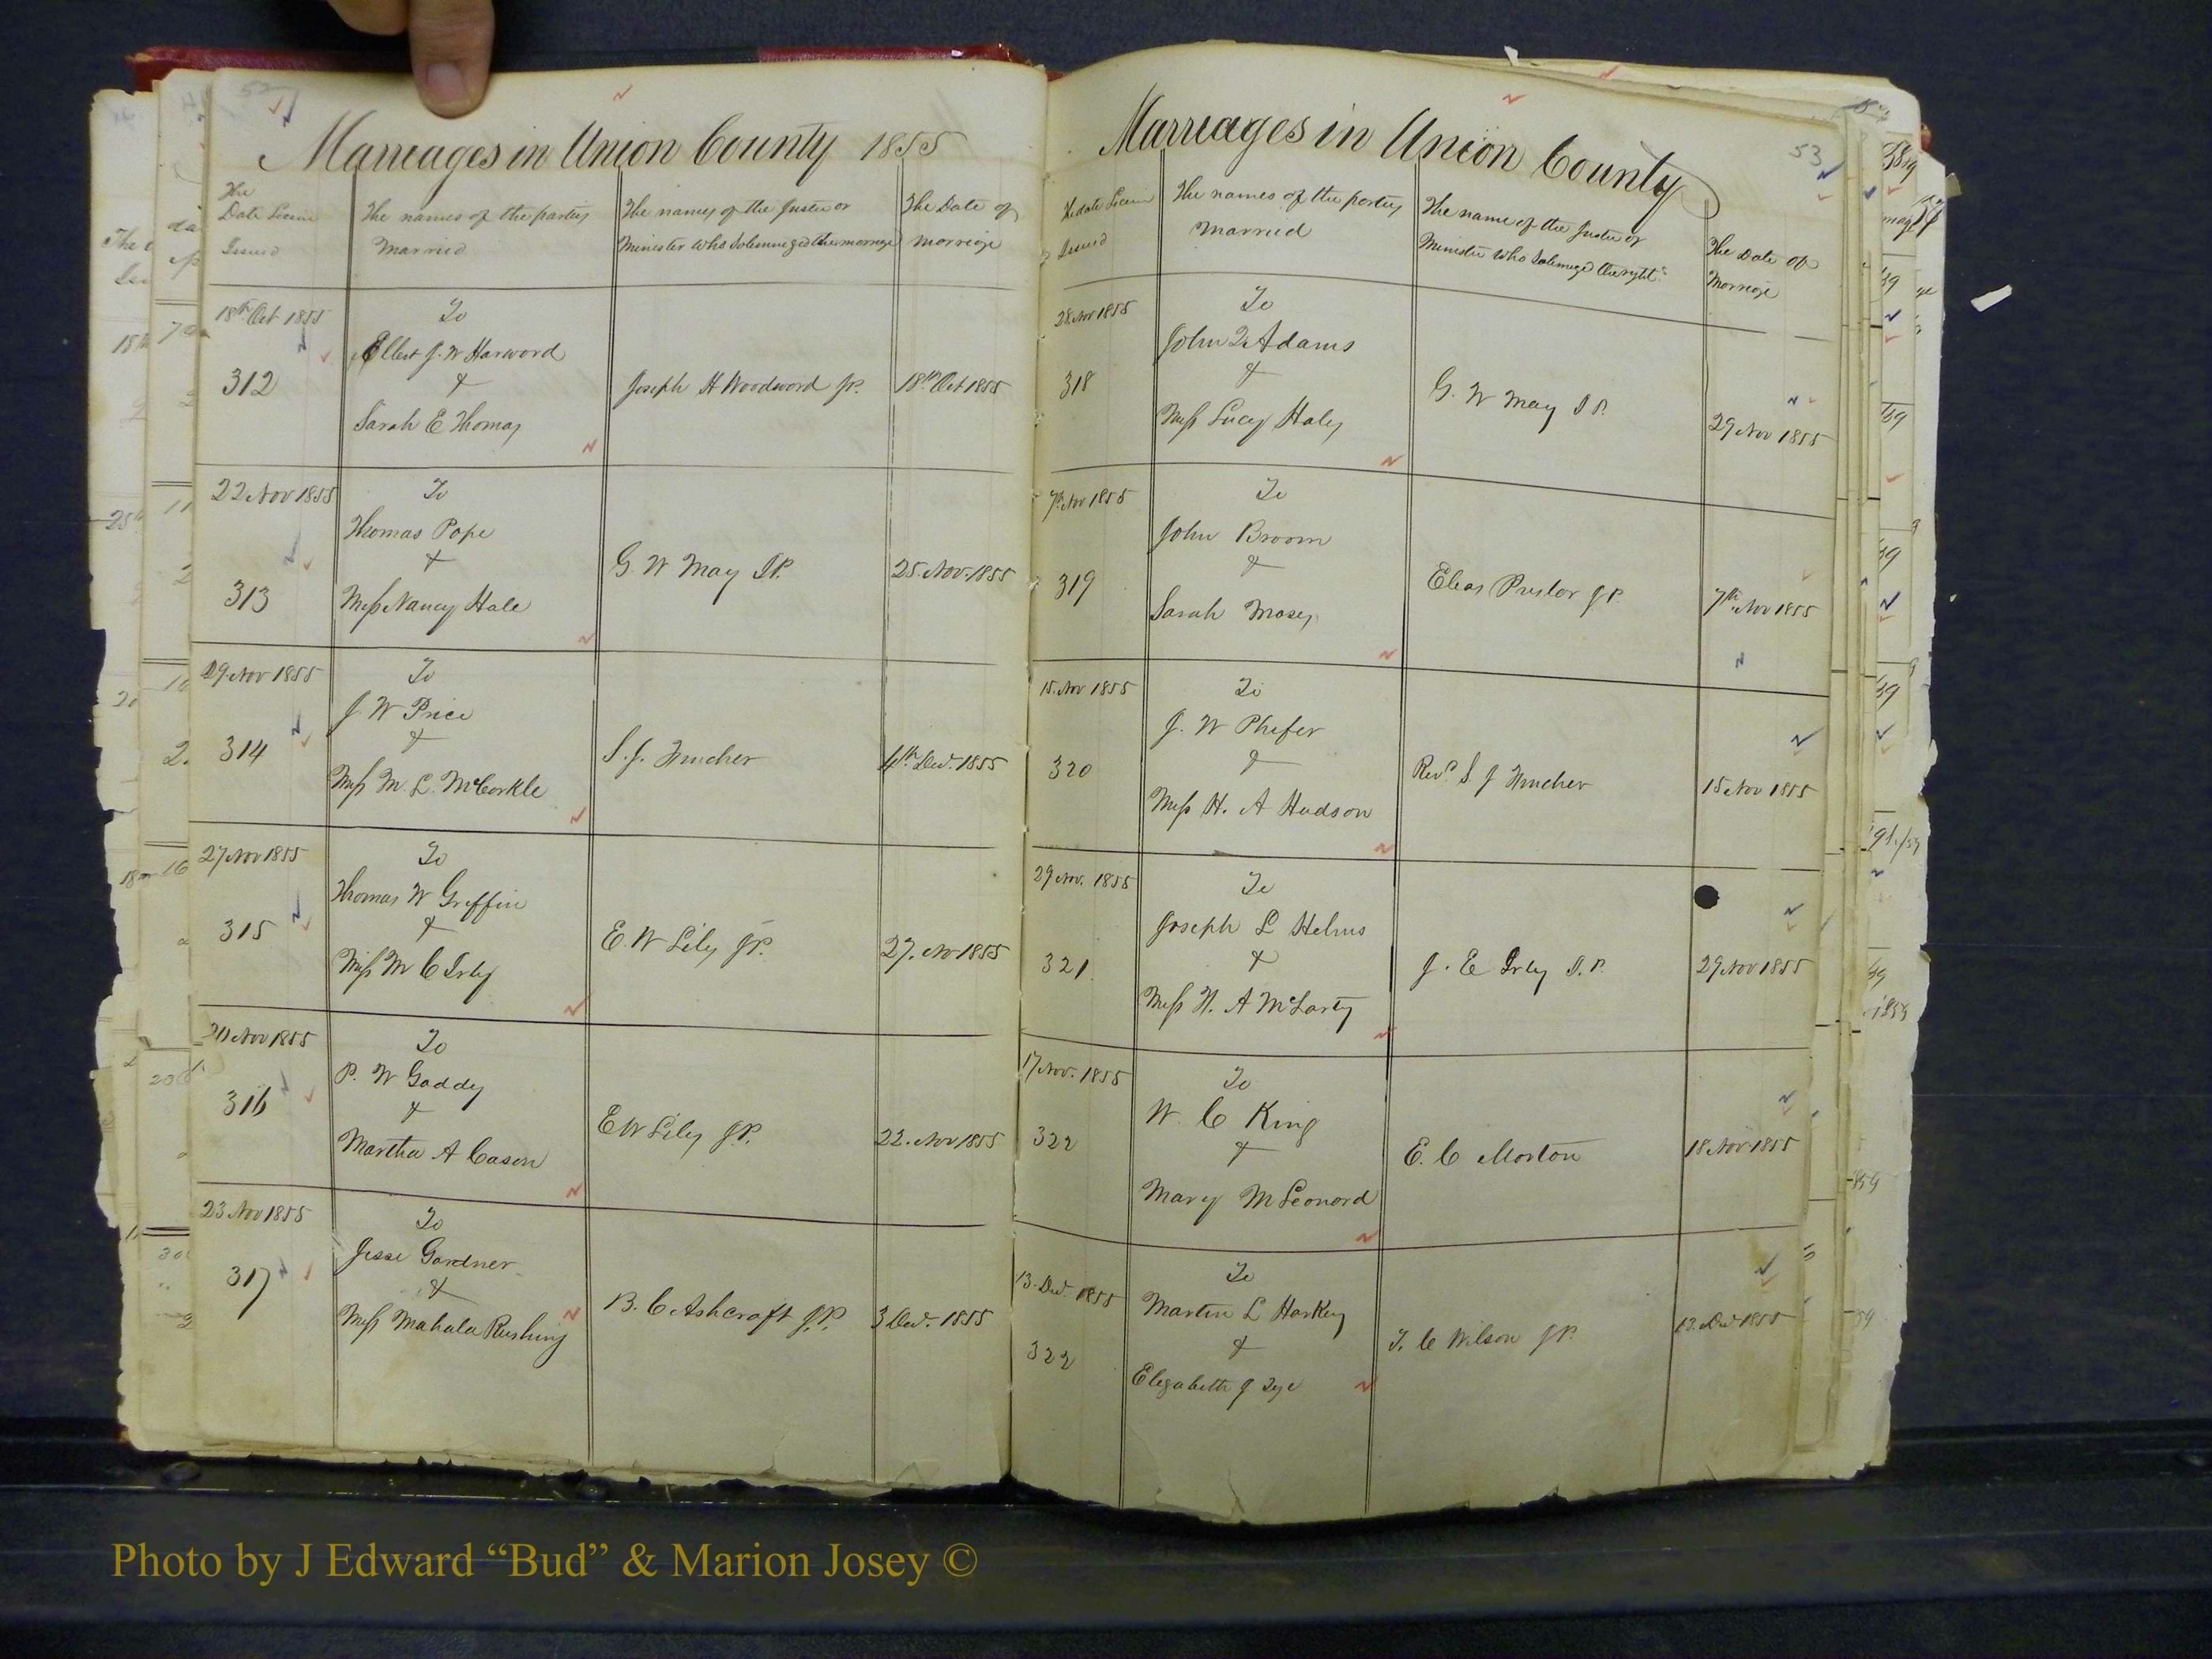 52
Marreages in Union County 1855
The
Date Licens
Issued
The names of the parties
Married
The names of the Justice or
Minister who Solemnezed the marriage
The Date of
Marriage
18th Oct 1855
To
Elbert J. W Harword
&
Sarah E Thomas
312
Joseph H Woodword JP.
18th Oct 1855
22 Nov 1855
To
Thomas Pope
&
Miss Nancy Hale
313
G. W May JP.
25. Nov. 1855
29 Nov 1855
To
J. W Price
&
Miss M. L. McCorkle
314
S. J. Fincher
4th Dec. 1855
27 Nov 1855
To
Thomas W Griffin
&
Miss M C Irby
315
E. W Lily JP.
27. Nov 1855
20 Nov 1855
To
P. W Gaddy
&
Martha A Cason
316
E W Lily J.P.
22. Nov 1855
23 Nov 1855
To
Jesse Gardner
&
Miss Mahala Rushing
317
B. C. Ashcraft J.P.
3 Dec. 1855
53
Marreages in Union County
The date Licens
Issued
The names of the parties
Married
The name of the Justice or
Minister who Solemnezed the right
The Date of
Marriage
28. Nov 1855
To
John Q Adams
&
Miss Lucy Haley
318
G. W May J P.
29 Nov 1855
7th Nov 1855
To
John Broom
&
Sarah Mosey
319
Elias Preslar JP.
7th Nov 1855
15. Nov 1855
To
J. W Phifer
&
Miss H. A Hudson
320
Revd. S. J Fincher
15 Nov 1855
29 Nov. 1855
To
Joseph L Helms
&
Miss H. A McLarty
321
J. E Irby J.P.
29 Nov 1855
17 Nov. 1855
To
W. C King
&
Mary M Leonord
322
E. C Morton
18 Nov 1855
13. Dec. 1855
To
Martin L Harkey
&
Elizabeth J
322
T. C Wilson JP.
13 Dec 1855
Photo by J Edward “Bud” & Marion Josey ©